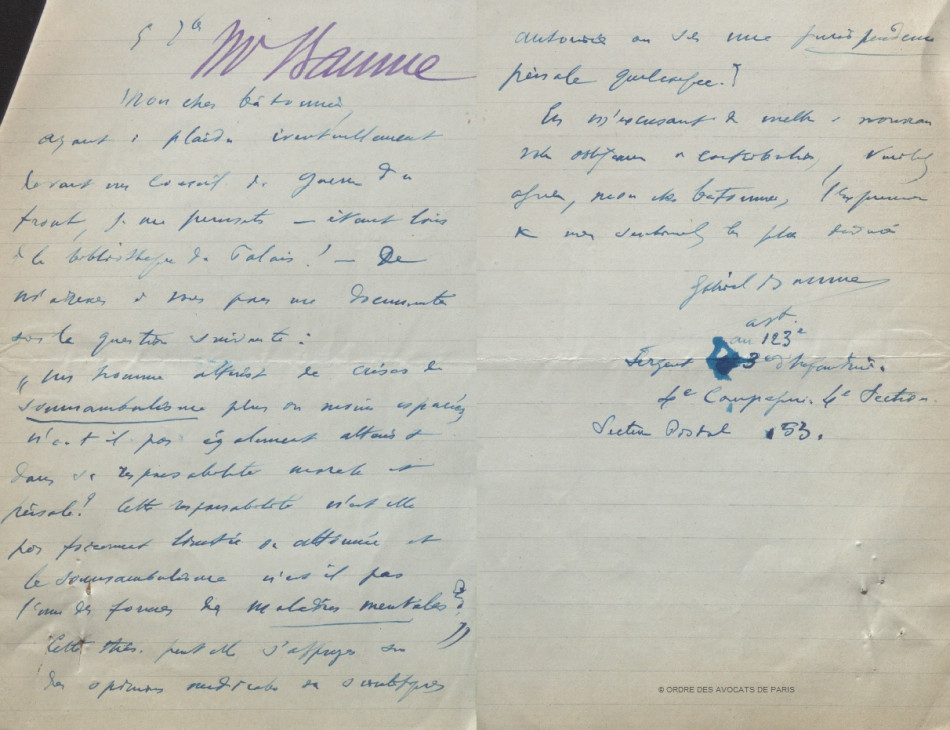 5 7bre
Mr Hamme
Mon cher bâtonnier,
ayant à plaider éventuellement
devant un Conseil de guerre du
front, je me permets – étant loin
de la bibliothèque du Palais! – De
m'adresser à vous pour me documenter
sur la question suivante :
"un homme atteint de crises de
somnambulisme plus ou moins espacées
n'est il pas également atteint
dans sa responsabilité morale et
pénale? Cette responsabilité n'est elle
pas forcément limitée ou atténuée et
le somnambulisme n'est il pas
l'une des formes des maladies mentales?"
Cette thèse peut elle s'appuyer sur
des opinions médicales ou scientifiques
autorisées ou sur une jurisprudence
pénale quelconque?
En m'excusant de mettre à nouveau
votre obligeance à contribution, veuillez
agréer, mon cher bâtonnier, l'expression
de mes sentiments les plus dévoués
Gabriel
au 123e
Sergent d'Infanterie.
4e Compagnie. 4e Section.
Secteur Postal 153.
© ORDRE DES AVOCATS DE PARIS